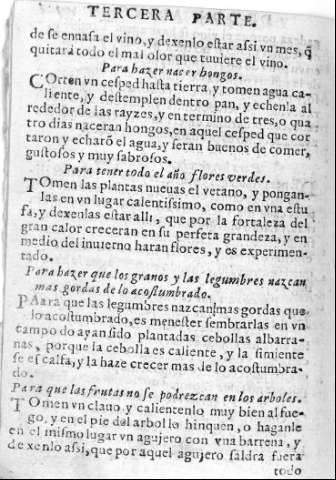 TERCERA PARTE.
de se enuasa el vino, y dexenlo estar assi vn mes, q̃
quitarà todo el mal olor que tuuiere el vino.
Para hazer nacer hongos.
COrten vn cesped hasta tierra, y tomen agua ca-
liente, y destemplen dentro pan, y echenla al
rededor de las rayzes, y en termino de tres, o qua
tro dias naceran hongos, en aquel cesped que cor
taron y echarõ el agua, y seran buenos de comer,
gustosos y muy sabrosos.
Para tener todo el año flores verdes.
TOmen las plantas nueuas el verano, y pongan-
las en vn lugar calentissimo, como en vna estu
fa, y dexenlas estar alli, que por la fortaleza del
gran calor creceran en su perfeta grandeza, y en
medio del inuierno haran flores, y es experimen-
tado.
Para hazer que los granos y las legumbres nazcan
mas gordas de lo acostumbrado.
PAara que las legumbres nazcan mas gordas que
lo acostumbrado, es menester sembrarlas en vn
campo do ayan sido plantadas cebollas albarra-
nas, porque la cebolla es caliente, y la simiente
se escalfa, y la haze crecer mas de lo acostumbra-
do.
Para que las frutas no se podrezcan en los arboles.
TOmen vn clauo y calientenlo muy bien al fue-
go, y en el pie del arbol lo hinquen, o haganle
en el mismo lugar vn agujero con vna barrena, y
dexenlo assi, que por aquel agujero saldra fuera
todo